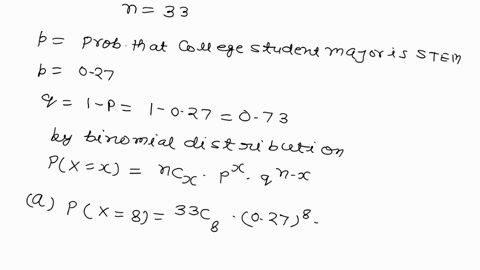 n = 33
p = Prob. that College student major is STEM
p = 0.27
q = 1-P = 1-0.27 = 0.73
by binomial distribution
P(X=x) = nCx · p^x · q^n-x
(a) P(X=8) = 33C8 · (0.27)^8 ·